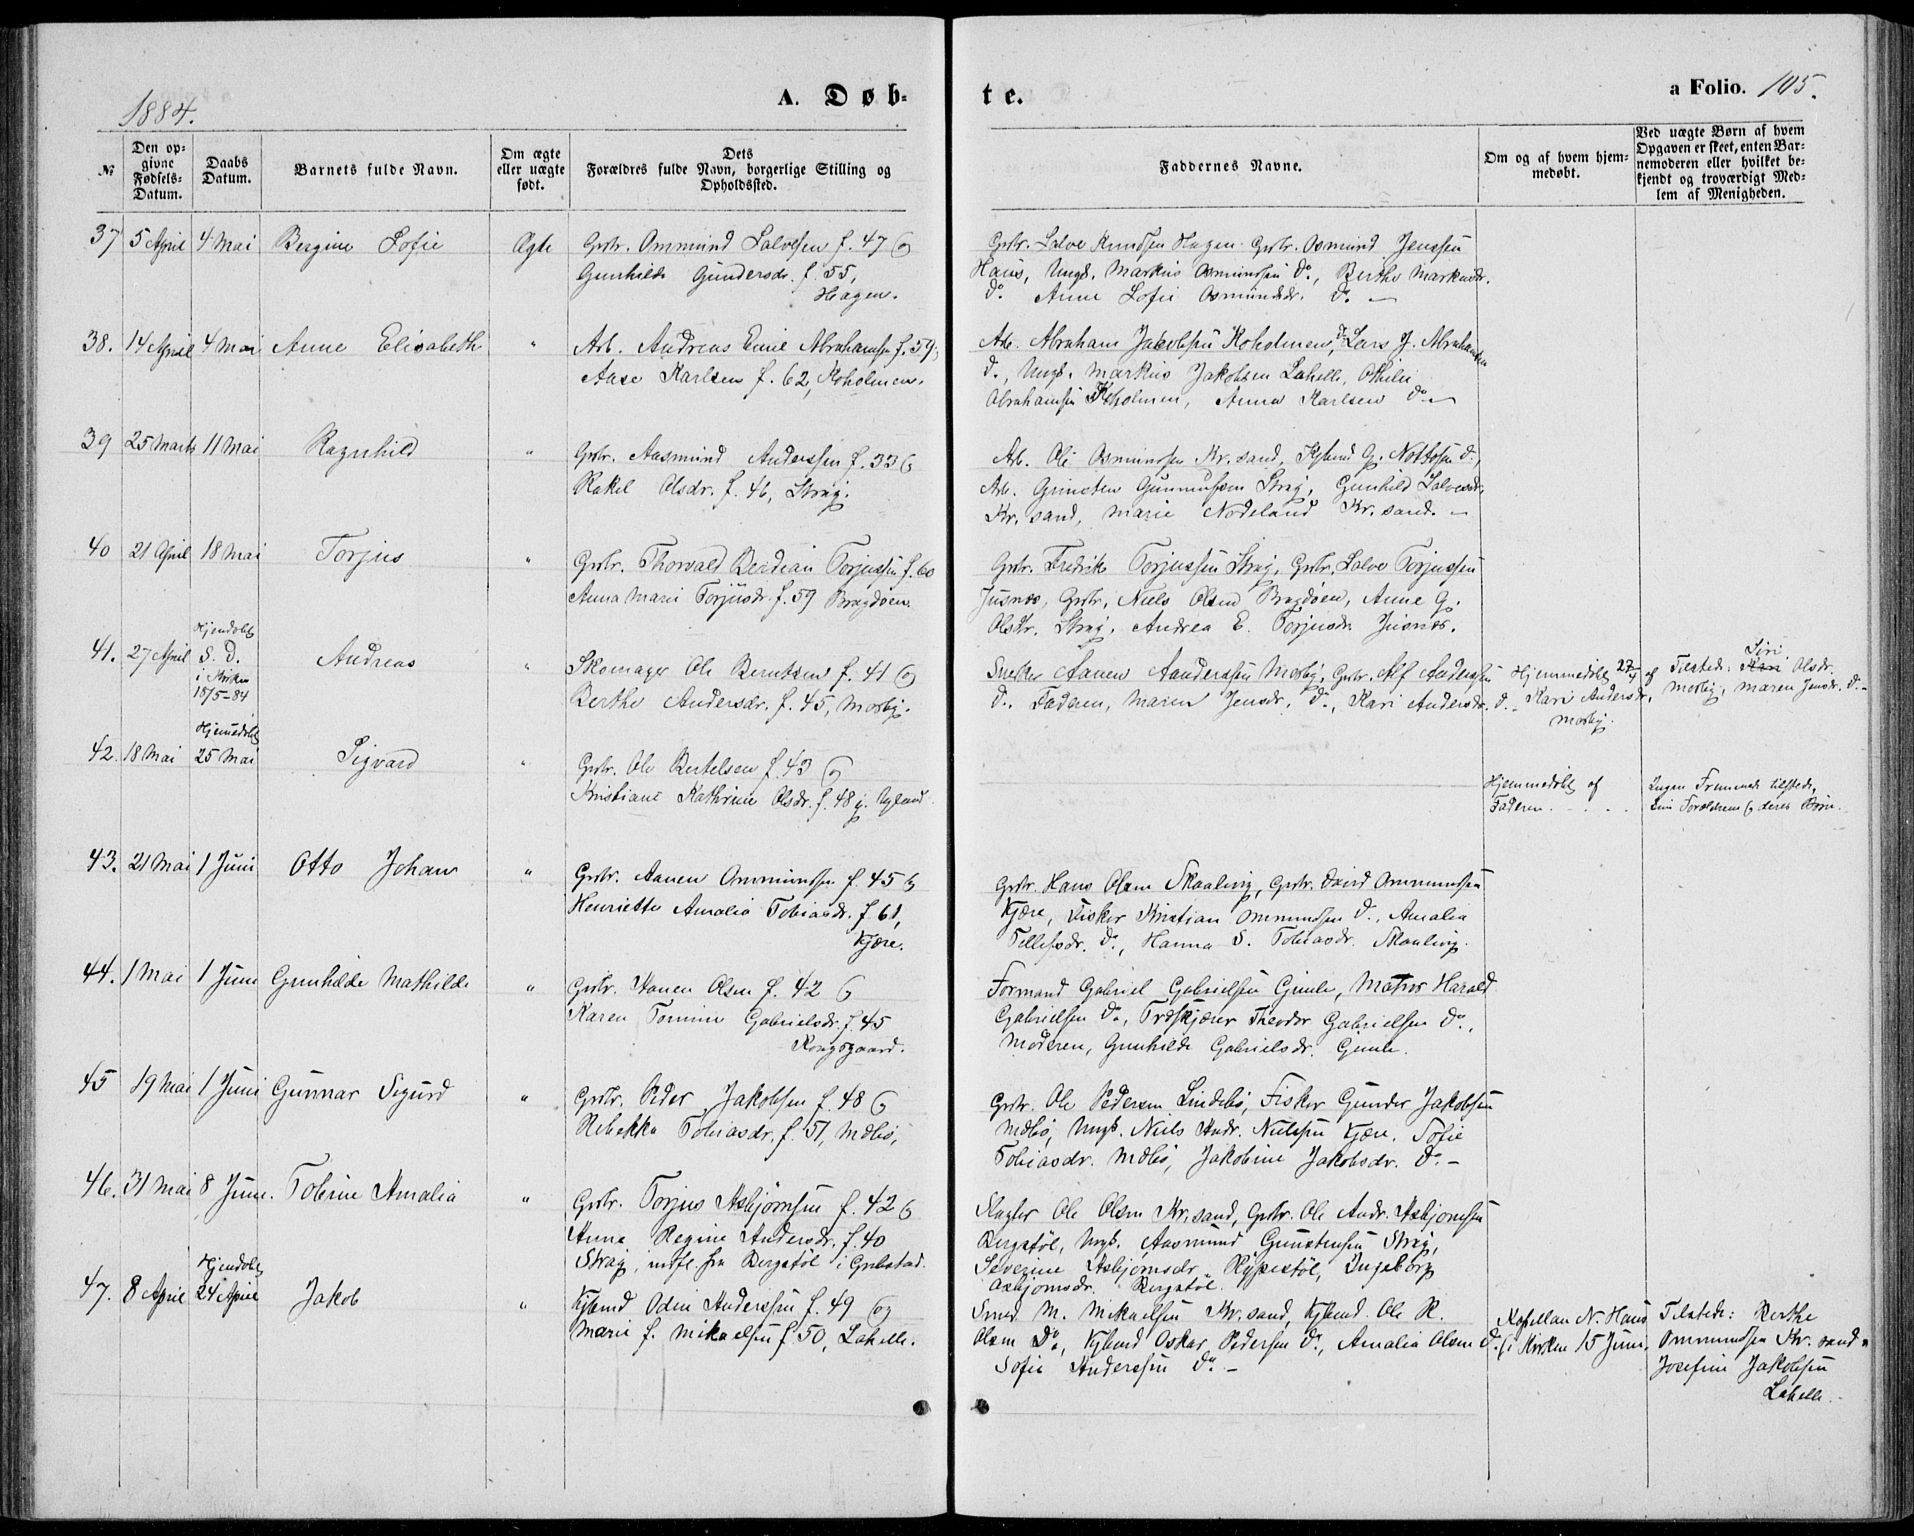 1884.
A. Døb-
te.
a Folio. 105.
№
Den op-
givne
Fødsels-
Datum.
Daabs
Datum.
Barnets fulde Navn.
Om ægte
eller uægte
født.
Dets
Forældres fulde Navn, borgerlige Stilling og
Opholdssted.
Faddernes Navne.
Om og af hvem hjem-
medøbt.
Ved uægte Børn af hvem
Opgaven er skeet, enten Bar-
nemoderen eller hvilket be-
kjendt og troværdigt Med-
lem af Menigheden.
37 5 April 4 Mai Bergine Sofie Ægte Grbr. Ommund Salvesen f. 47 og
Gunhilde Gundersdr. f. 55,
Hagen.
Grbr. Salve Knudsen Hagen. Grbr. Osmund Jenssen
Haus, Ungk. Markus Osmundsen do., Berthe Markusdr.
do. Anne Sofie Osmundsdr. do. —
38. 14 April 4 Mai Anne Elisabeth " Arb. Andreas Emil Abrahamsen f. 59,
Aase Karlsen f. 62, Koholmen.
Arb. Abraham Jakobsen Koholmen, do Lars J. Abrahamsen
do., Ungk. Markus Jakobsen Lahelle, Othilie
Abrahamsen Koholmen, Anna Karlsen do —
39 25 Marts 11 Mai Ragnhild " Grbr. Aasmund Anderssen f. 33 og
Rakel Olsdr. f. 46, Strag.
Arb. Ole Osmundsen Kr.sand, Kjbmd G. Nottosen do,
Arb. Grunsten Gunnufsen Strag, Gunhild Salvesdr.
Kr.sand, Marie Nodeland Kr.sand. —
40 21 April 18 Mai Torjus " Grbr. Thorvald Berdean Torjussen f. 60
Anna Marie Torjusdr. f. 59 Bragdøen.
Grbr. Fredrik Torjussen Strag, Grbr. Salve Torjussen
Jusnes, Grbr. Niels Olsen Bragdøen, Anne G.
Olsdtr. Strag, Andrea E. Torjusdr. Jusnes.
41. 27 April Hjemdøbt
S. D.
i Kirken
18/5-84
Andreas " Skomager Ole Berntsen f. 41 og
Berthe Andersdr. f. 45, Mosby.
Snekker Aanen Aanderssen Mosby, Grbr. Alf Anderssen
do. Faderen, Maren Jensdr. do., Kari Andersdr. do.
Hjemmedøbt 27/4 af
Kari Andersdr,
Mosby.
Tilstede: Siri Olsdr.
Mosby, Maren Jensdr. do. —
42. 18 Mai Hjemdøbt
25 Mai Sigvard " Grbr. Ole Bertelsen f. 43 og
Kristiane Kathrine Olsdr. f. 48 Ugland
Hjemmedøbt af
Faderen . . . .
Ingen Fremmede tilstede,
kun Forældrene og deres Børn.
43. 21 Mai 1 Juni Otto Johan " Grbr. Aanen Ommundsen f. 45 og
Henriette Amalia Tobiasdr. f. 61,
Kjære.
Grbr. Hans Olsen Skaalevig, Grbr. David Ommundsen
Kjære, Fisker Kristian Ommundsen do., Amalia
Tellefsdr. do., Hanna S. Tobiasdr. Skaalevig.
44. 1 Mai 1 Juni Gunhilde Mathilde " Grbr. Aanen Olsen f. 42 og
Karen Tomine Gabrielsdr. f. 45
Kongsgaard.
Formand Gabriel Gabrielsen Gimle, Matros Harald
Gabrielsen do., Træskjærer Theodor Gabrielsen do.,
Moderen, Gunhilde Gabrielsdr. Gimle.
45 19 Mai 1 Juni Gunnar Sigurd " Grbr. Peder Jakobsen f. 48 og
Rebekka Tobiasdr. f. 51, Mæbø,
Grbr. Ole Pedersen Lindebø, Fisker Gunder Jakobsen
Mæbø, Ungk. Niels Andr. Nielsen Kjære. Sofie
Tobiasdr. Mæbø, Jakobine Jakobsdr. do. —
46. 31 Mai 8 Juni. Tobine Amalia " Grbr. Torjus Asbjørnsen f. 42 og
Anna Regine Andersdr. f. 40
Strag, indfl. fra Bergstøl i Grebstad.
Slagter Ole Olsen Kr.sand, Grbr. Ole Andr. Asbjørnsen
Bergstøl, Ungk. Aasmund Grunstensen Strag,
Severine Asbjørnsdr. Hypestøl, Ingeborg
Asbjørnsdr. Bergstøl.
47. 8 April Hjemdøbt
24 April Jakob " Kjbmd Odin Anderssen f. 49 og
Marie f. Mikaelsen f. 50, Lahelle.
Smed M. Mikaelsen Kr.sand, Kjbmd Ole R.
Olsen do, Kjbmd Oskar Pedersen do., Amalia Olsen do.
Sofie Anderssen do. —
Kapellan N. Hans
(i Kirken 15 Juni.
Tilstede: Berthe
Ommundsen Kr.sand
Josefine Jakobsen
Lahelle.